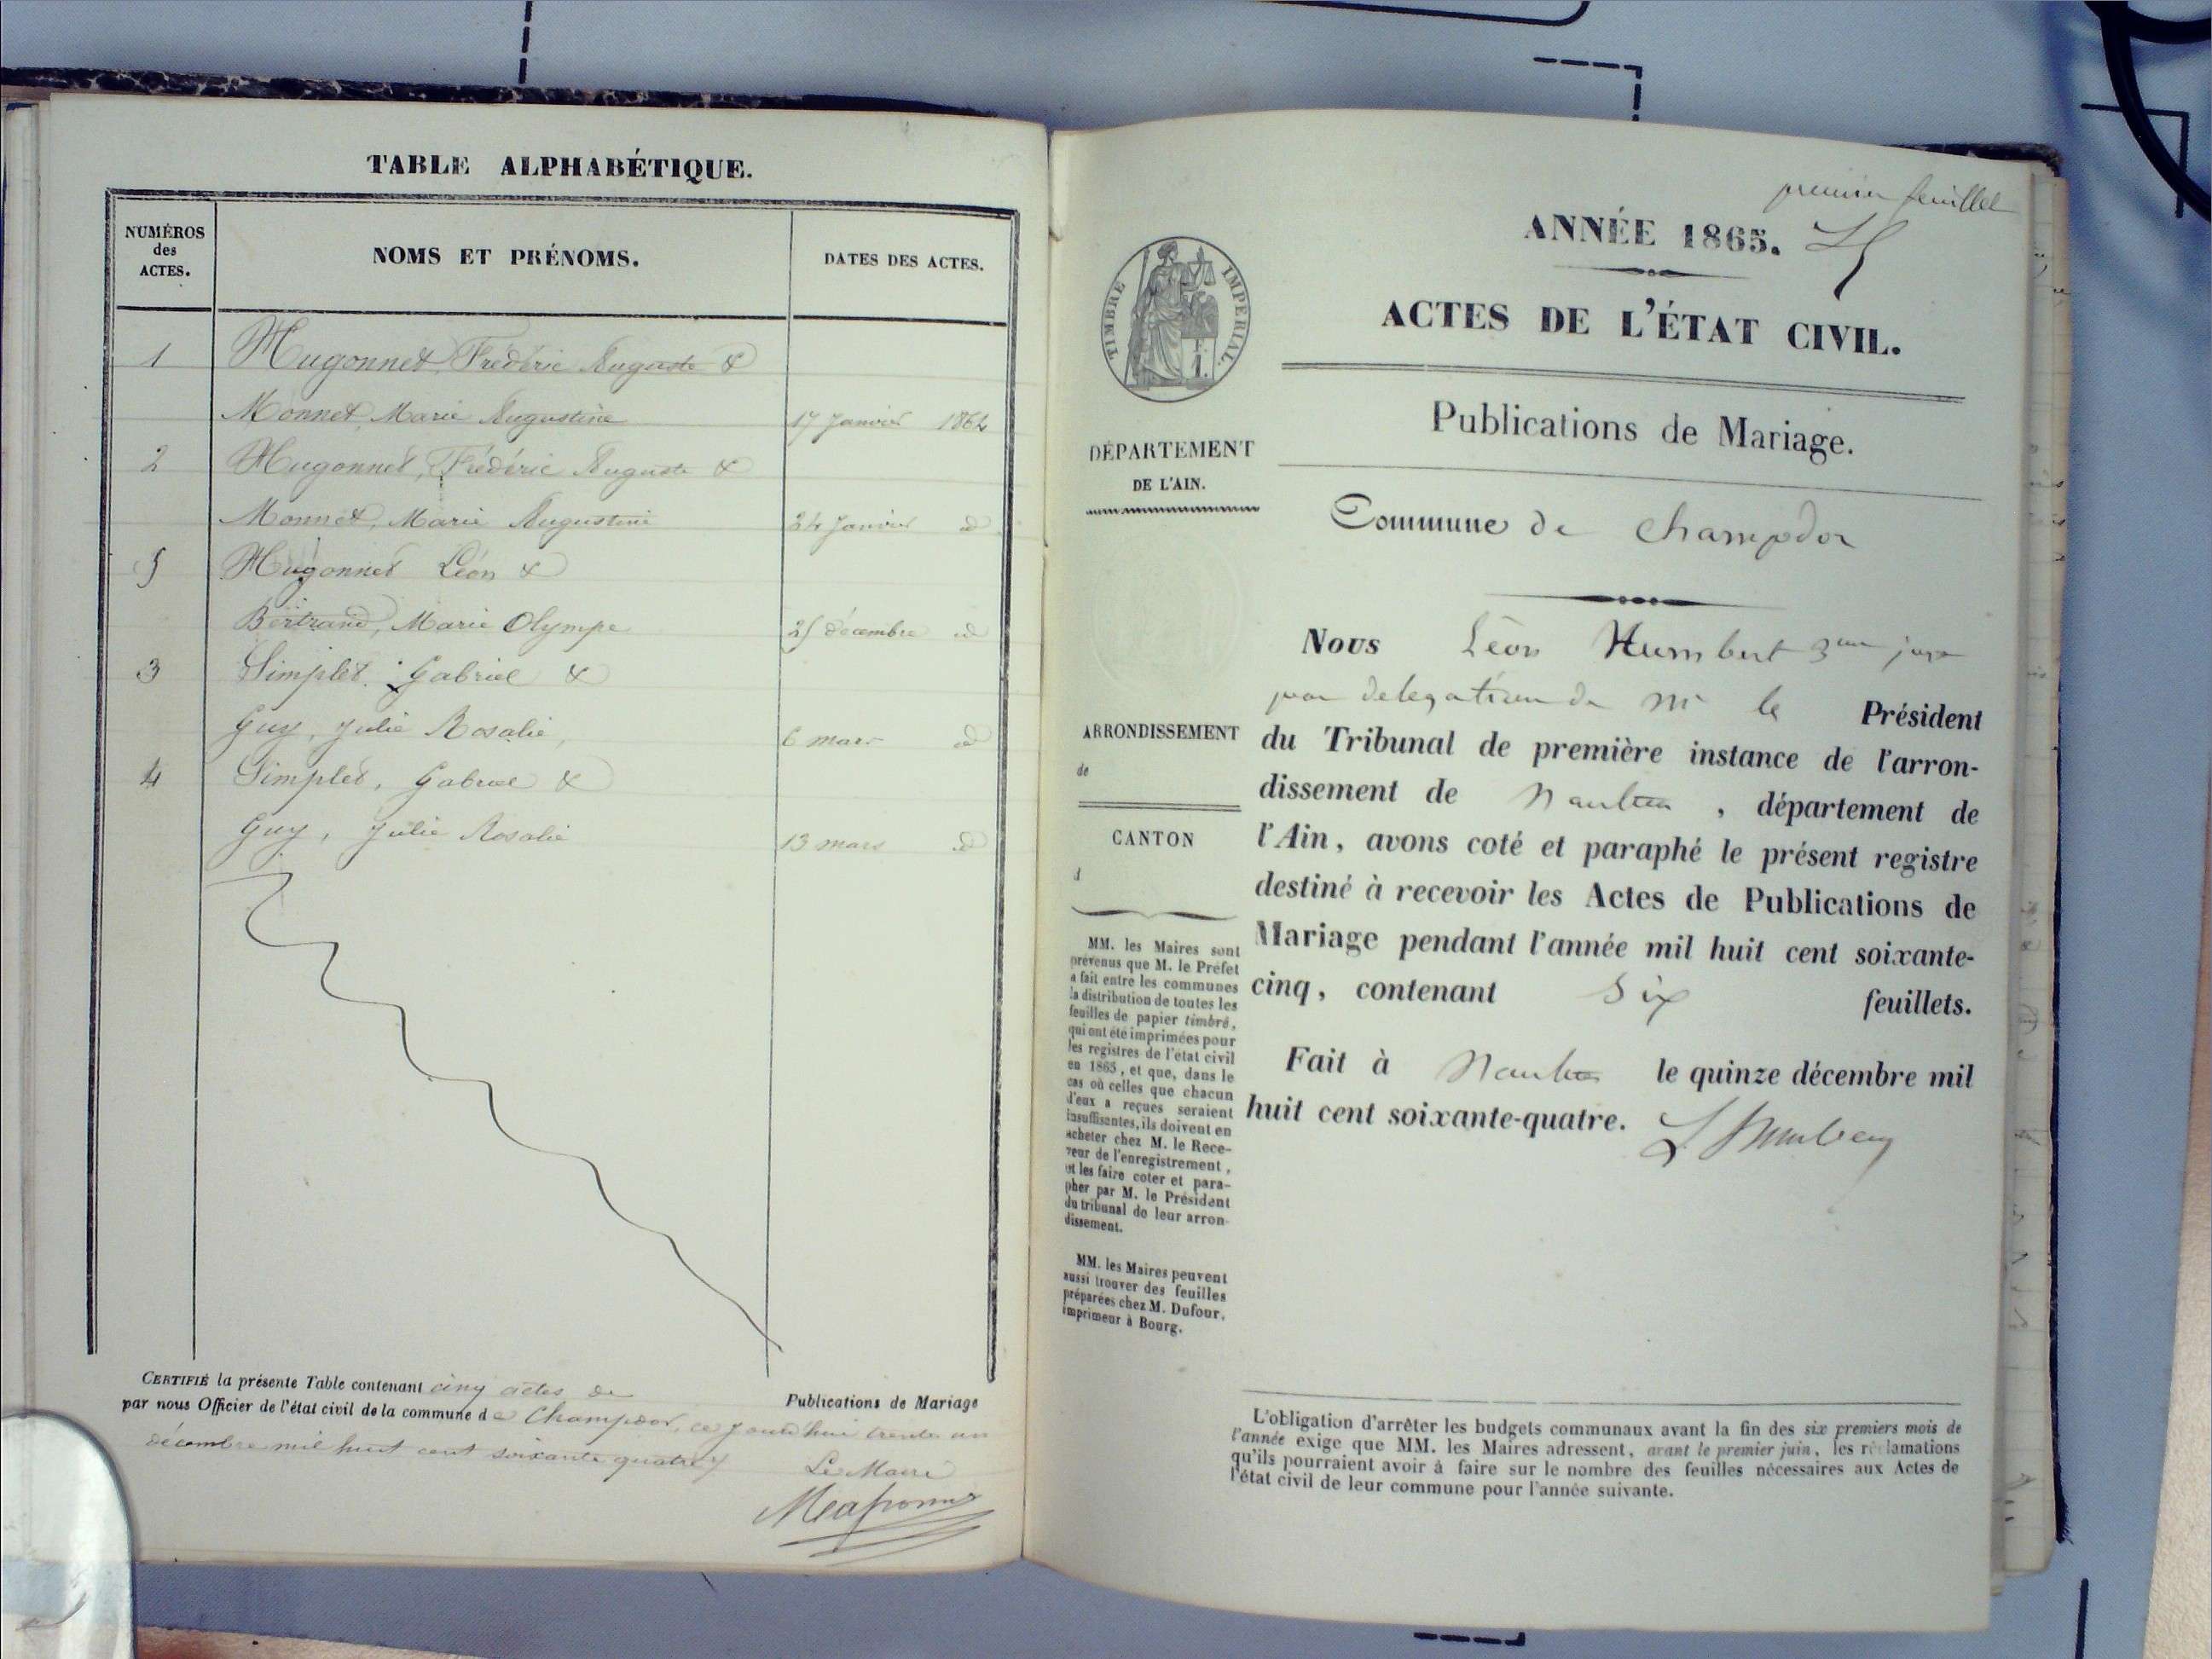 TABLE ALPHABÉTIQUE.
NUMÉROS
des
ACTES.
NOMS ET PRÉNOMS.
DATES DES ACTES.
1 Hugonnet, Frédéric Auguste &
Monnet, Marie Augustine 17 Janvier 1864
2 Hugonnet, Frédéric Auguste &
Monnet, Marie Augustine 24 Janvier id
5 Hugonnet Léon &
Bertrand, Marie Olympe 25 décembre id
3 Simplet Gabriel &
Guy, Julie Rosalie, 6 mars id
4 Simplet, Gabriel &
Guy, Julie Rosalie 13 mars id
CERTIFIÉ la présente Table contenant cinq actes de Publications de Mariage
par nous Officier de l'état civil de la commune de Champdor, ce jourd'hui trente un
décembre mil huit cent soixante quatre
Le Maire
premier feuillet
ANNÉE 1865.
TIMBRE IMPÉRIAL.
ACTES DE L'ÉTAT CIVIL.
Publications de Mariage.
DÉPARTEMENT
DE L'AIN.
Commune de Champdor
ARRONDISSEMENT
de
CANTON
d
Nous Léon Humbert 3me juge
par delegation de Mr le Président
du Tribunal de première instance de l'arron-
dissement de Nantua, département de
l'Ain, avons coté et paraphé le présent registre
destiné à recevoir les Actes de Publications de
Mariage pendant l'année mil huit cent soixante-
cinq, contenant six feuillets.
Fait à Nantua le quinze décembre mil
huit cent soixante-quatre.
L Humbert
MM. les Maires sont
prévenus que M. le Préfet
a fait entre les communes
la distribution de toutes les
feuilles de papier timbré,
qui ont été imprimées pour
les registres de l'état civil
en 1865, et que, dans le
cas où celles que chacun
d'eux a reçues seraient
insuffisantes, ils doivent en
acheter chez M. le Rece-
veur de l'enregistrement,
et les faire coter et para-
pher par M. le Président
du tribunal de leur arron-
dissement.
MM. les Maires peuvent
aussi trouver des feuilles
préparées chez M. Dufour,
imprimeur à Bourg.
L'obligation d'arrêter les budgets communaux avant la fin des six premiers mois de
l'année exige que MM. les Maires adressent, avant le premier juin, les réclamations
qu'ils pourraient avoir à faire sur le nombre des feuilles nécessaires aux Actes de
l'état civil de leur commune pour l'année suivante.